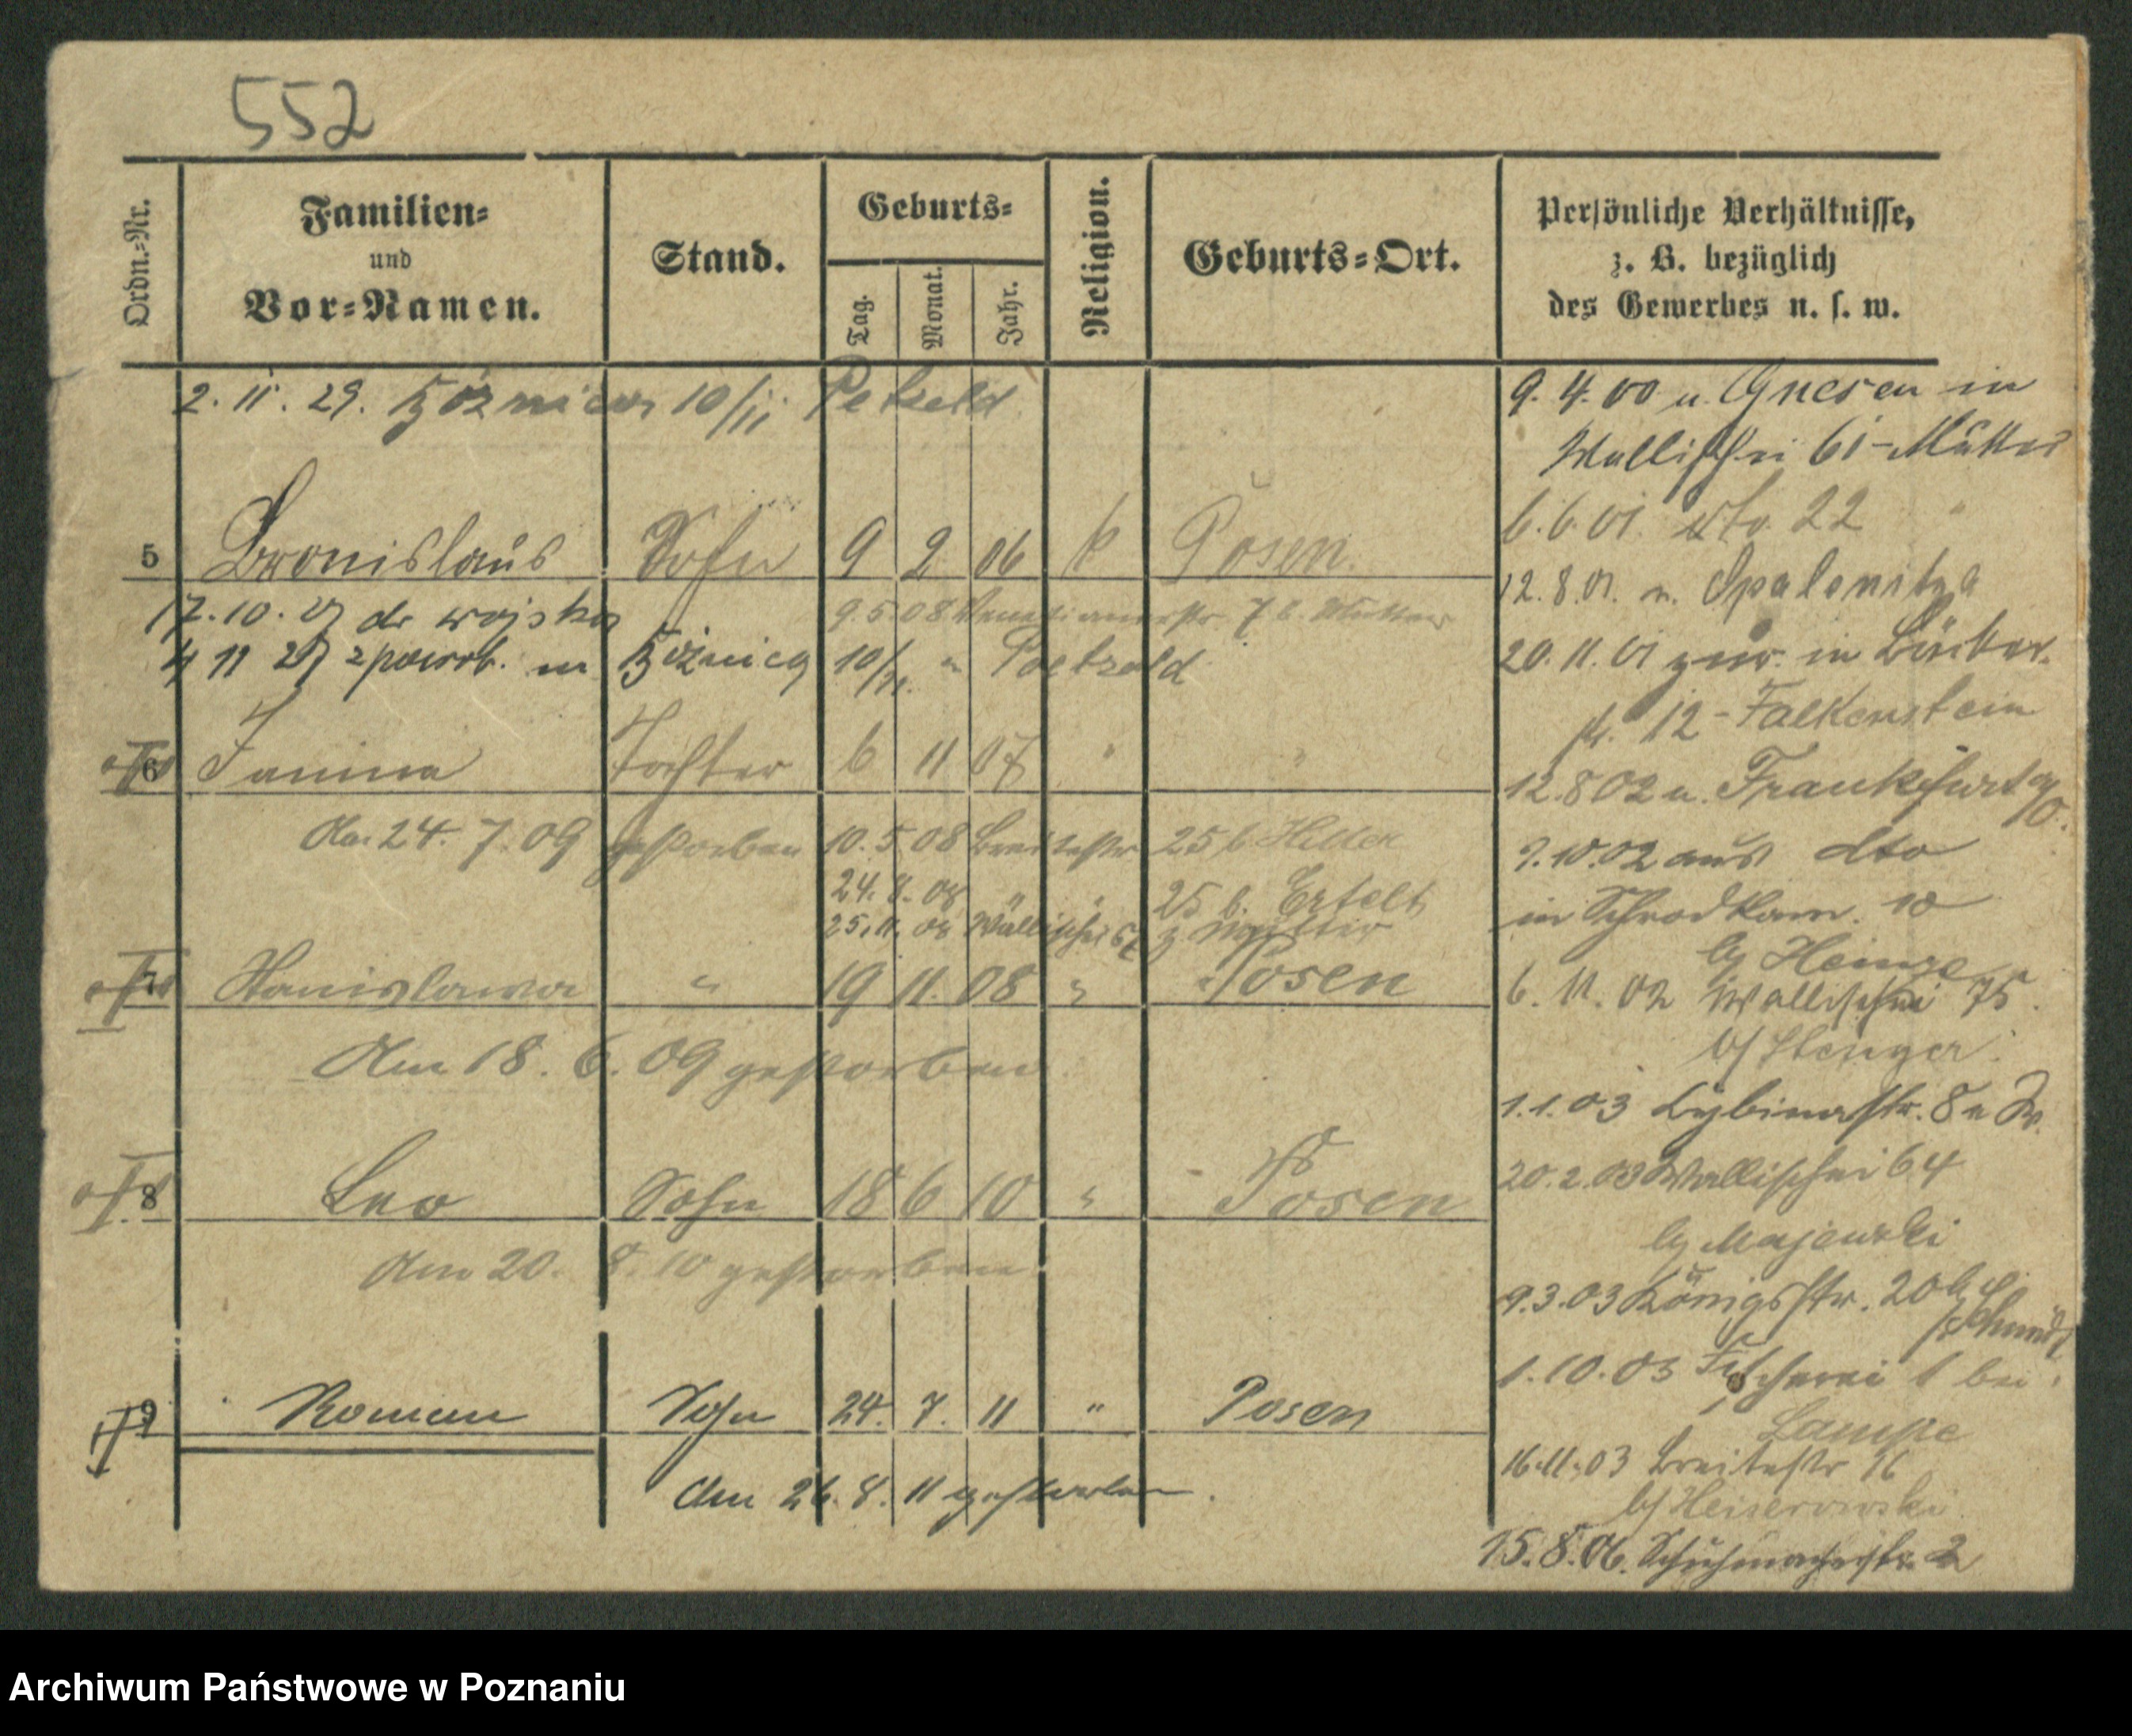 552
Ordn.-Nr.
Familien-
und
Vor-Namen.
Stand.
Geburts-
Tag.
Monat.
Jahr.
Religion.
Geburts-Ort.
Persönliche Verhältnisse,
z. B. bezüglich
des Gewerbes u. s. w.
2. 11. 29. Bóżnicza 10/11 Petzeld
5 Bronislaus Sohn 9 2 06 k Posen
17.10.27 do wojska
9.5.08 7 b. Mutter
4 11 29 z powrot. na Bóżniczą 10/11 Paetzold
6 Janina Tochter 6 11 07 " "
Am 24. 7. 09 gestorben
10.5.08 Breitestr 25 b Hiller
24. 8. 08 " 25 b. Ertelt
25. 11. 08 Wallischei z Mutter
7 Stanislawa " 19 11. 08 " Posen
Am 18. 6. 09 gestorben
8 Leo Sohn 18 6 10 " Posen
Am 20. 8. 10 gestorben
9 Roman Sohn 24. 7. 11 " Posen
Am 26. 8. 11 gestorben.
9. 4. 00 n. Gnesen in
Wallischei 61 - Mutter
6. 6. 01. dto 22
12. 8. 01. n. Opalenitza
20. 11. 01 zur. in
str. 12 - Falkenstein
12. 8 02 n. Frankfurt a/O.
7. 10. 02 aus dto
in Schrodkam. 10
by Heinze
6. 11. 02 Wallischei 75.
b/ Stenger
1. 1. 03 Cybinastr. 8
20. 2. 03 Wallischei 64
by Majewski
9. 3. 03 Königsstr. 20 bei
Schmidt
1. 10. 03 Fischerei 1 bei
Lampe
16. 11. 03 Breitestr 16
15. 8. 06. Schuhmacherstr. 2
Archiwum Państwowe w Poznaniu